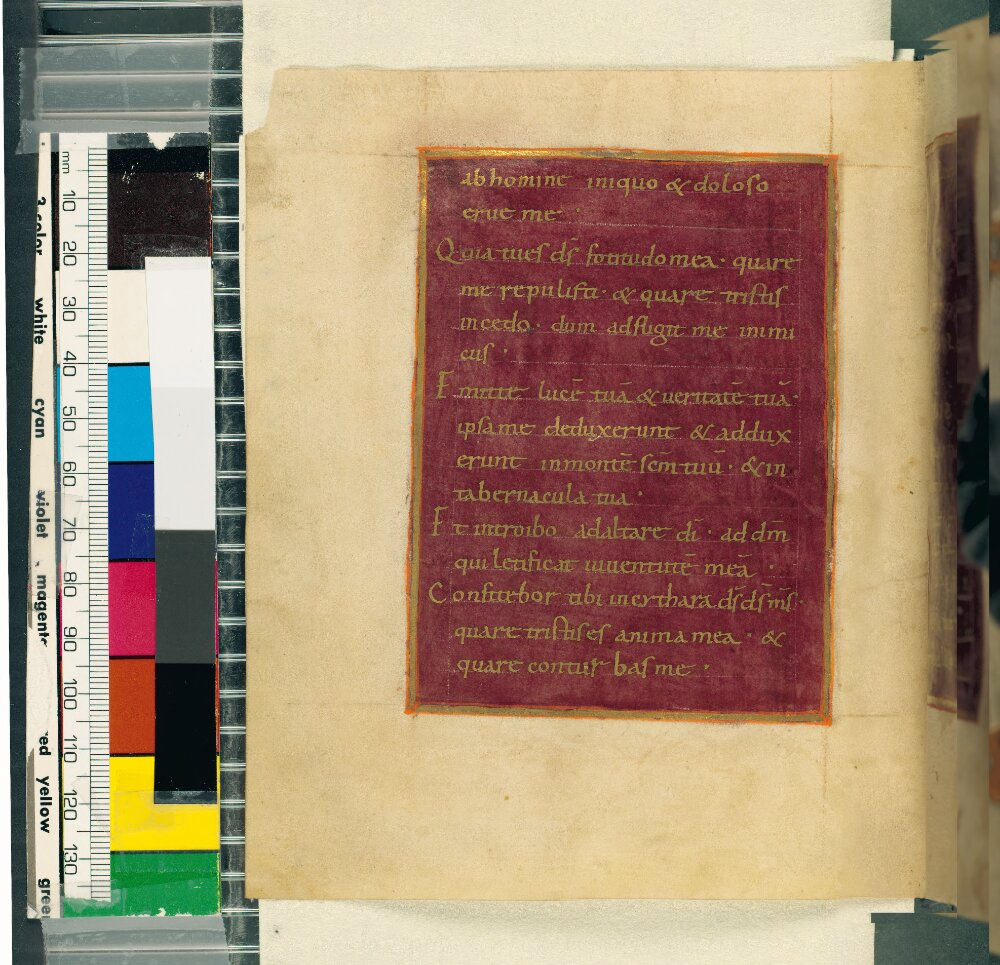 ab homine iniquo & doloso
erue me
Quia tu es ds̄ fortitudo mea · quare
me repulisti · & quare tristis
incedo · dum adfligit me inimi
cus ·
Emitte lucē tuā & veritatē tuā ·
ipsa me deduxerunt & addux
erunt in montē scm̄ tuū · & in
tabernacula tua ·
Et introibo ad altare dī · ad dm̄
qui letificat iuventutē meā ·
Confitebor tibi in cythara ds̄ ds̄ ms̄ ·
quare tristis es anima mea · &
quare conturbas me ·
mm
10
20
30
40
50
60
70
80
90
100
110
120
130
color
white
cyan
violet
magent
ed
yellow
gree